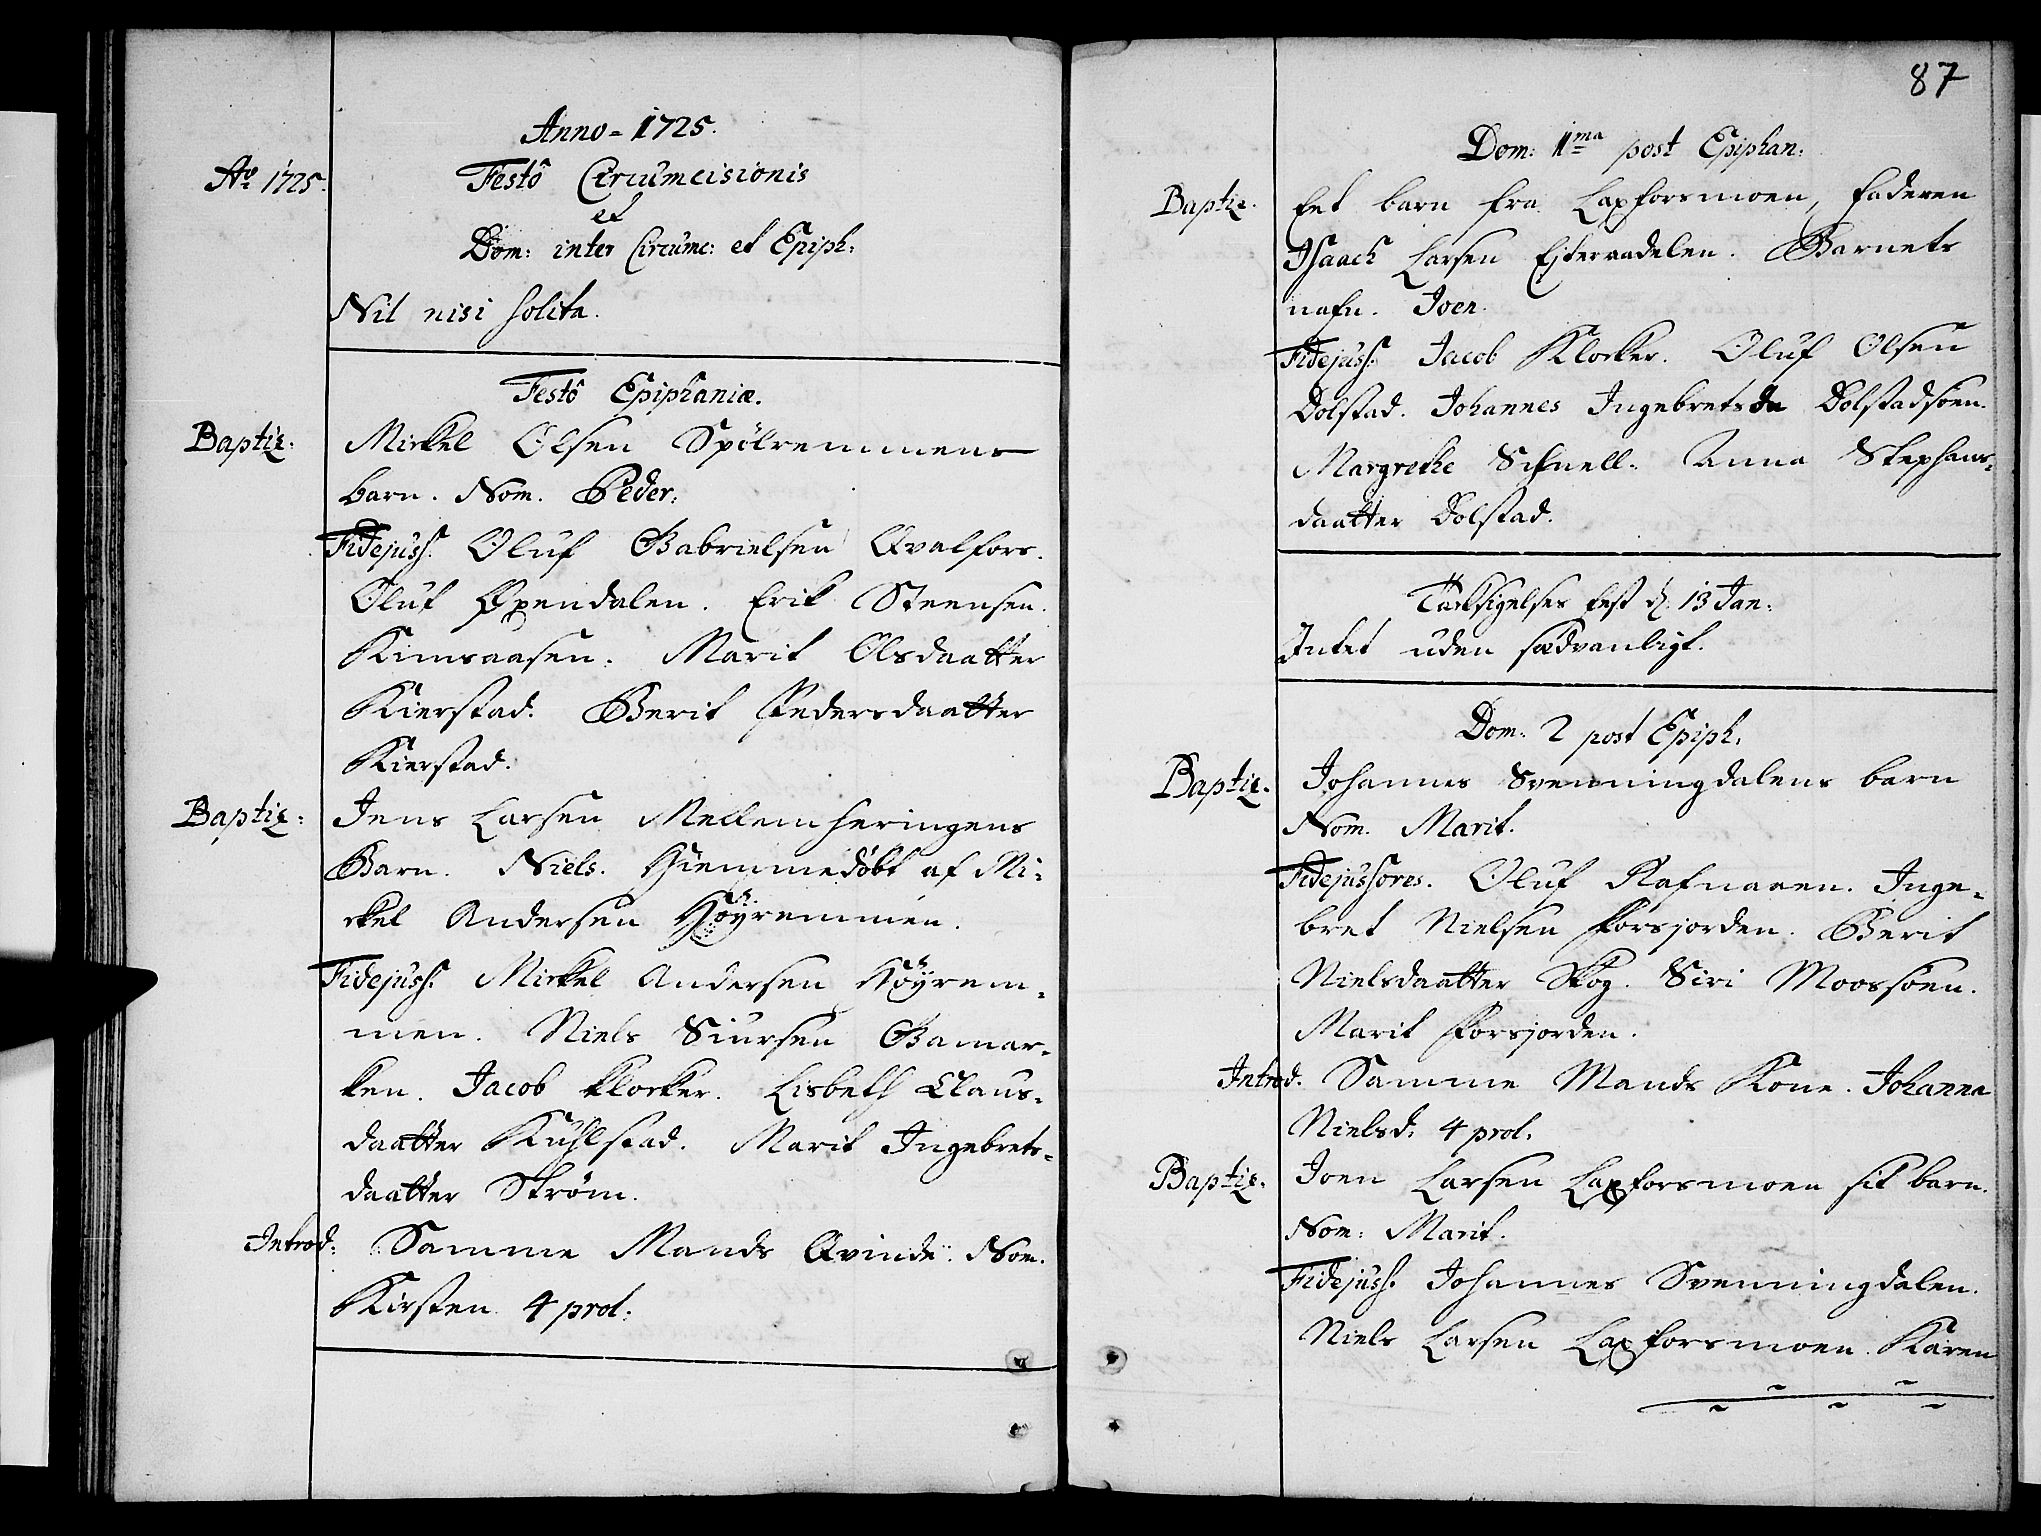 Anno - 1725.
Ao 1725.
Festô Circumcisionis
et
Dom: inter Circumc: et Epiph:
Nil nisi solita.
Festô Epiphaniæ.
Baptiz:
Mickel Olsen Spölremmens
barn. Nom. Peder.
Fidejuss. Oluf Gabrielsen Qvalfors.
Oluf Øxendalen. Erik Steensen
Kimsaasen. Marit Olsdaatter
Kierstad. Berit Pedersdaatter
Kierstad.
Baptiz:
Jens Larsen Mellemheringens
Barn. Niels. Hiemmedöbt af Mi-
ckel Andersen Höÿremmen.
Fidejuss. Mickel Andersen Höÿrem-
men. Niels Siursen Gamar-
ken. Jacob Klocker. Lisbeth Claus-
daatter Kuhlstad. Marit Ingebrets-
daatter Ström.
Introd: Samme Mands Qvinde. Nom.
Kirsten 4 prol.
87
Dom: 1ma post Epiphan:
Baptiz.
Eet barn fra Laxforsmoen, faderen
Isaach Larsen Eiteraadelen. Barnets
nafn. Joen.
Fidejuss. Jacob Klocker. Oluf Olsen
Dolstad. Johannes Ingebrets Dolstadsöen.
Margrethe Schnell. Anna Stephans-
daatter Dolstad.
Tacksigelses fest d. 13 Jan:
Intet uden sædvanligt.
Dom. 2 post Epiph.
Baptiz.
Johannes Svenningdalens barn
Nom. Marit.
Fidejussores. Oluf Rafnaaen. Inge-
bret Nielsen Forsjorden. Berit
Nielsdaatter Skog. Siri Moossöen.
Marit Forsjorden.
Introd. Samme Mands Kone. Johanna
Nielsd. 4 prol.
Baptiz.
Joen Larsen Laxforsmoen sit barn.
Nom: Marit.
Fidejuss. Johannes Svenningdalen.
Niels Larsen Laxforsmoen. Karen